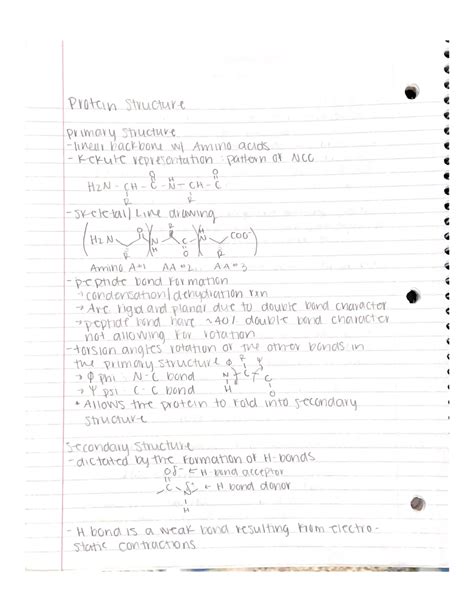 Protein Structure
Primary Structure
-linear backbone w/ Amino acids
- Kekule representation: pattern of NCC
O O
H2N - CH - C - N - CH - C
R H R
-Skeletal/Line drawing
(H2N O N R C N COO-)
R H O H R
Amino A#1 AA #2 AA #3
-peptide bond formation
→ condensation/dehydration rxn
→ Are rigid and planar due to double bond character
→ peptide bond have ~40% double bond character
not allowing for rotation
-torsion angles rotation of the other bonds in
the primary structure Φ R Ψ
→ Φ phi : N-C bond N C C
→ Ψ psi : C-C bond H O
* Allows the protein to fold into secondary
structure
Secondary Structure
-dictated by the formation of H-bonds
Oδ- ← H-bond acceptor
C N δ+ ← H bond donor
H
- H bond is a weak bond resulting from electro-
static contractions